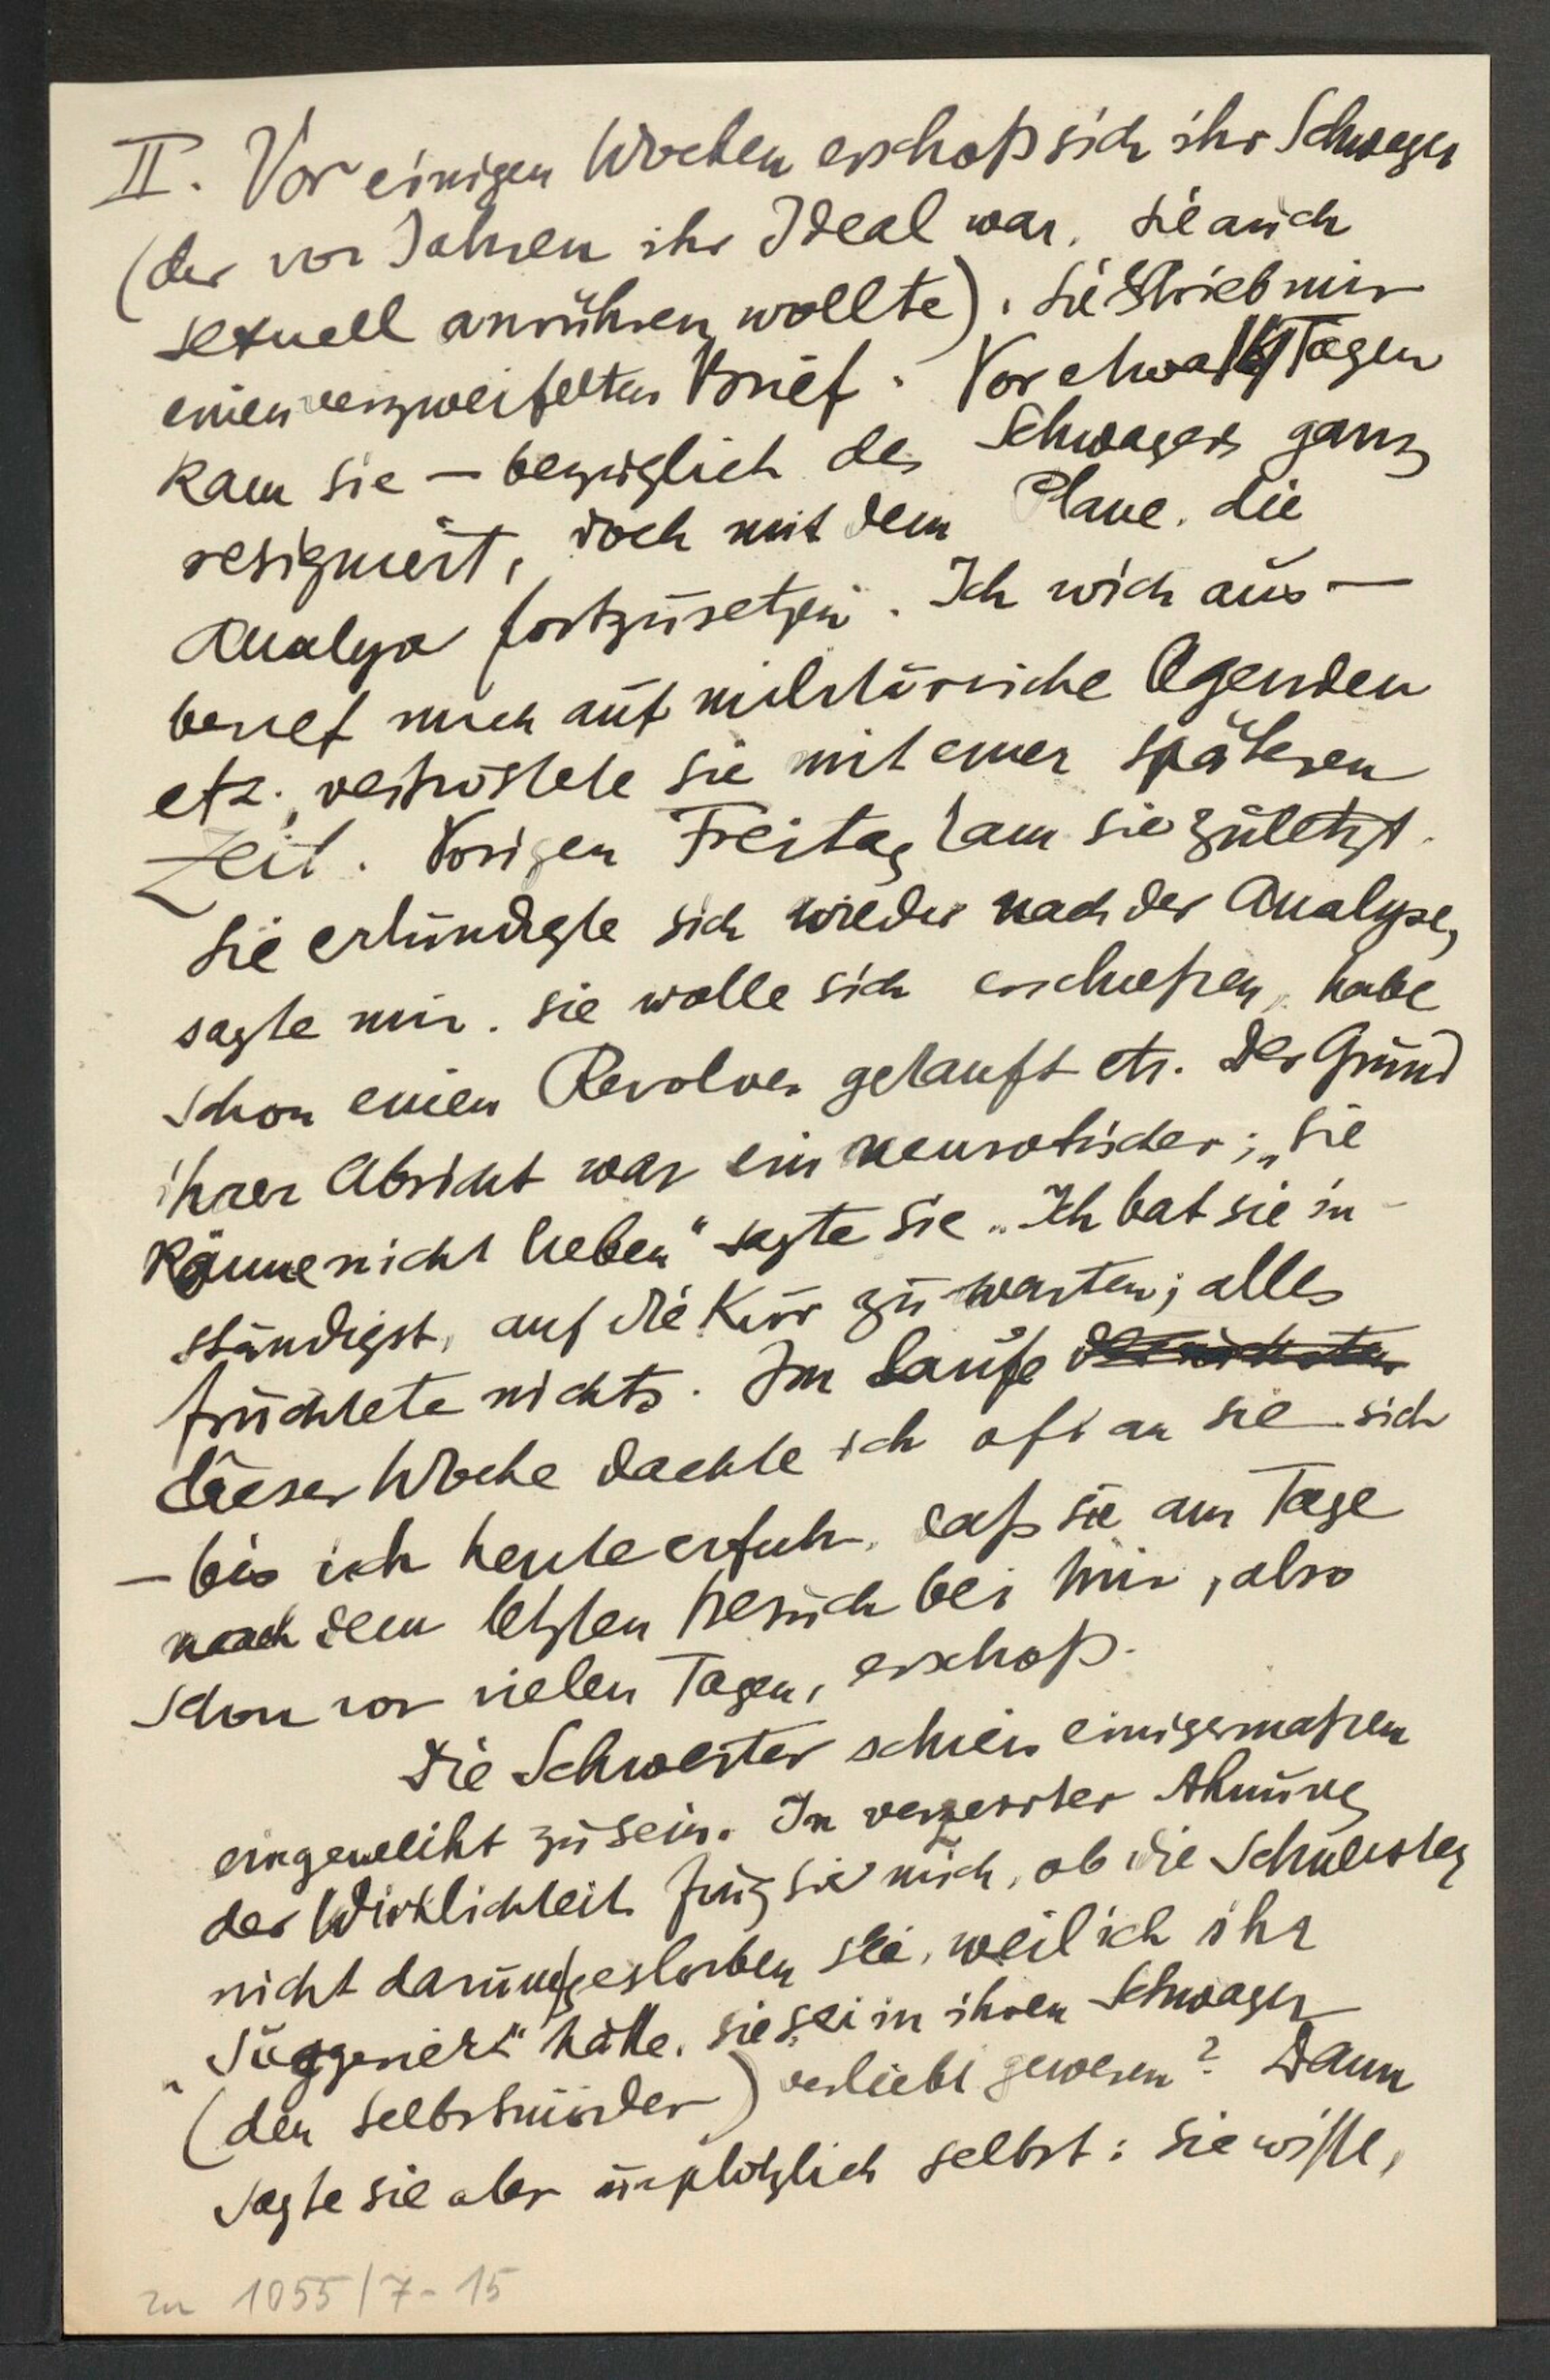 II. Vor einigen Wochen erschoß sich ihr Schwager
(der vor Jahren ihr Ideal war, sie auch
sexuell anrühren wollte). Sie schrieb mir
einen verzweifelten Brief. Vor etwa 14 Tagen
kam sie – bezüglich des Schwagers ganz
resigniert, doch mit dem Plane, die
Analyse fortzusetzen. Ich wich aus –
berief mich auf militärische Agenden
etz., vertröstete sie mit einer späteren
Zeit. Vorigen Freitag kam sie zuletzt.
Sie erkundigte sich wieder nach der Analyse,
sagte mir, sie wolle sich erschießen, habe
schon einen Revolver gekauft etc. Der Grund
ihrer Absicht war ein neurotischer; „sie
könne nicht lieben“ sagte sie. Ich bat sie in-
ständigst, auf die Kur zu warten; alles
fruchtete nichts. Im Laufe der nächsten
dieser Woche dachte ich oft an sie sich
– bis ich heute erfuhr, daß sie am Tage
nach dem letzten Besuch bei mir, also
schon vor vielen Tagen, erschoß.
Die Schwester schien einigermaßen
eingeweiht zu sein. In verzerrter Ahnung
der Wirklichkeit frug sie mich, ob die Schwester
nicht darum gestorben sei, weil ich ihr
„suggeriert“ hätte, sie sei in ihren Schwager
(den Selbstmörder) verliebt gewesen? Dann
sagte sie aber urplötzlich selbst: sie wisse,
zu 1055/7-15